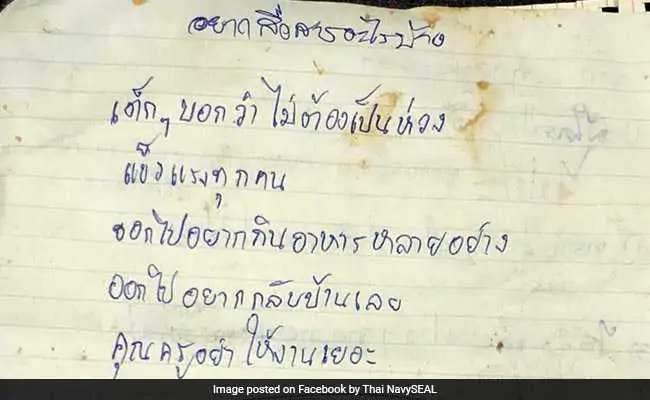 อยากสื่อสารอะไรบ้าง
เด็กๆ บอกว่า ไม่ต้องเป็นห่วง
แข็งแรงทุกคน
ออกไปอยากกินอาหารหลายอย่าง
ออกไป อยากกลับบ้านเลย
คุณครูอย่าให้งานเยอะ
Image posted on Facebook by Thai NavySEAL